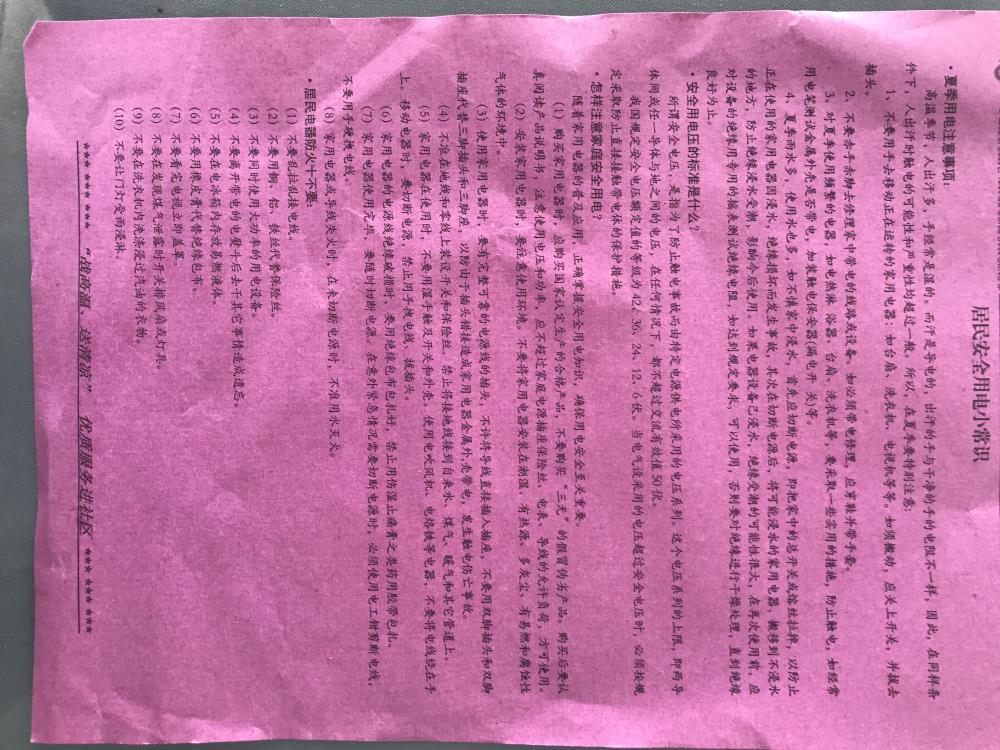 居民安全用电小常识
·夏季用电注意事项:
高温季节,人出汗多,手经常是湿的,而汗是导电的,出汗的手与干净的手的电阻不一样,因此,在同样条
件下,人出汗时触电的可能性和严重性均超过一般。所以,在夏季要特别注意:
1、不要用手去移动正在运转的家用电器:如台扇、洗衣机、电视机等等。如须搬动,应关上开关,并拔去
插头。
2、不要赤手赤脚去修理家中带电的线路或设备。如必须带电修理,应穿鞋并带手套。
3、对夏季使用频繁的电器,如电热淋浴器、台扇、洗衣机等,要采取一些实用的措施,防止触电,如经常
用电笔测试金属外壳是否带电,加装触电保安器(漏电开关)等。
4、夏季雨水多,使用水也多,如不慎家中浸水,首先应切断电源,即把家中的总开关或熔丝拉掉,以防止
正在使用的家用电器因浸水,绝缘损坏而发生事故,其次在切断电源后,将可能浸水的家用电器,搬移到不浸水
的地方,防止绝缘浸水受潮,影响今后使用。如果电器设备已浸水,绝缘受潮的可能性很大,在再次使用前,应
对设备的绝缘用专用的摇表测试绝缘电阻。如达到规定要求,可以使用,否则要对绝缘进行干燥处理,直到绝缘
良好为止。
·安全用电电压的标准是什么?
所谓安全电压,是指为了防止触电事故而由特定电源供电所采用的电压系列。这个电压系列的上限,即两导
体间或任一导体与地之间的电压,在任何情况下,都不超过交流有效值50伏。
我国规定安全电压额定值的等级为42、36、24、12、6伏。当电气设采用的电压超过安全电压时,必须按规
定采取防止直接接触带电体的保护措施。
·怎样注意家庭安全用电?
随着家用电器的普及应用,正确掌握安全用电知识,确保用电安全至关重要。
(1) 购买家用电器时,应购买国家认定生产的合格产品,不要购买“三无”的假冒伪劣产品。购买后要认
真阅读产品说明书,注意使用电压和功率,应不超过家庭电源插座保险丝、电表、导线的允许负荷,方可使用。
(2) 安装家用电器时,要注意使用环境。不要将家用电器安装在潮湿、有热源、多灰尘、有易燃和腐蚀性
气体的环境中。
(3) 使用家用电器时,要有完整可靠的电源线的插头。不许将导线直接插入插座,不要用双脚插头和双脚
插座代替三脚插头和三脚座,以防由于插头错接造成家用电器金属外壳带电,发生触电伤亡事故。
(4) 不准在地线和零线上装设开关和保险丝。禁止将接地线接到自来水、煤气、暖气和其它管道上。
(5) 家用电器在使用时,不要用湿手触及开关和外壳,使用电吹风机、电烙铁等电器,不要将电线绕在手
上。移动电器时,要切断电源,禁止用手拽电线,拔插头。
(6) 家用电器的电源线绝缘破损时,要用绝缘包布包扎好,禁止用伤湿止痛膏之类药用胶带包扎。
(7) 家用电器使用完毕,要随时切断电源。在意外紧急情况需要切断电源时,必须使用电工钳剪断电线,
不要用手硬拽电线。
(8) 家用电器或导线失火时,在未切断电源时,不准用水灭火。
·居民电器防火十不要:
(1) 不要乱拉乱接电线。
(2) 不要用铜、铝、铁丝代替保险丝。
(3) 不要同时使用大功率的用电设备。
(4) 不要离开带电的电熨斗后去干其它事情造成遗忘。
(5) 不要在电冰箱内存放易燃液体。
(6) 不要用橡皮膏代替绝缘包布。
(7) 不要看完电视立即盖罩。
(8) 不要在发现煤气泄露时开关排风扇或灯具。
(9) 不要在洗衣机内洗涤浸过汽油的衣物。
(10) 不要让门灯受雨浇淋。
*** *** *** “战高温、送清凉” 优质服务进社区 *** *** ***